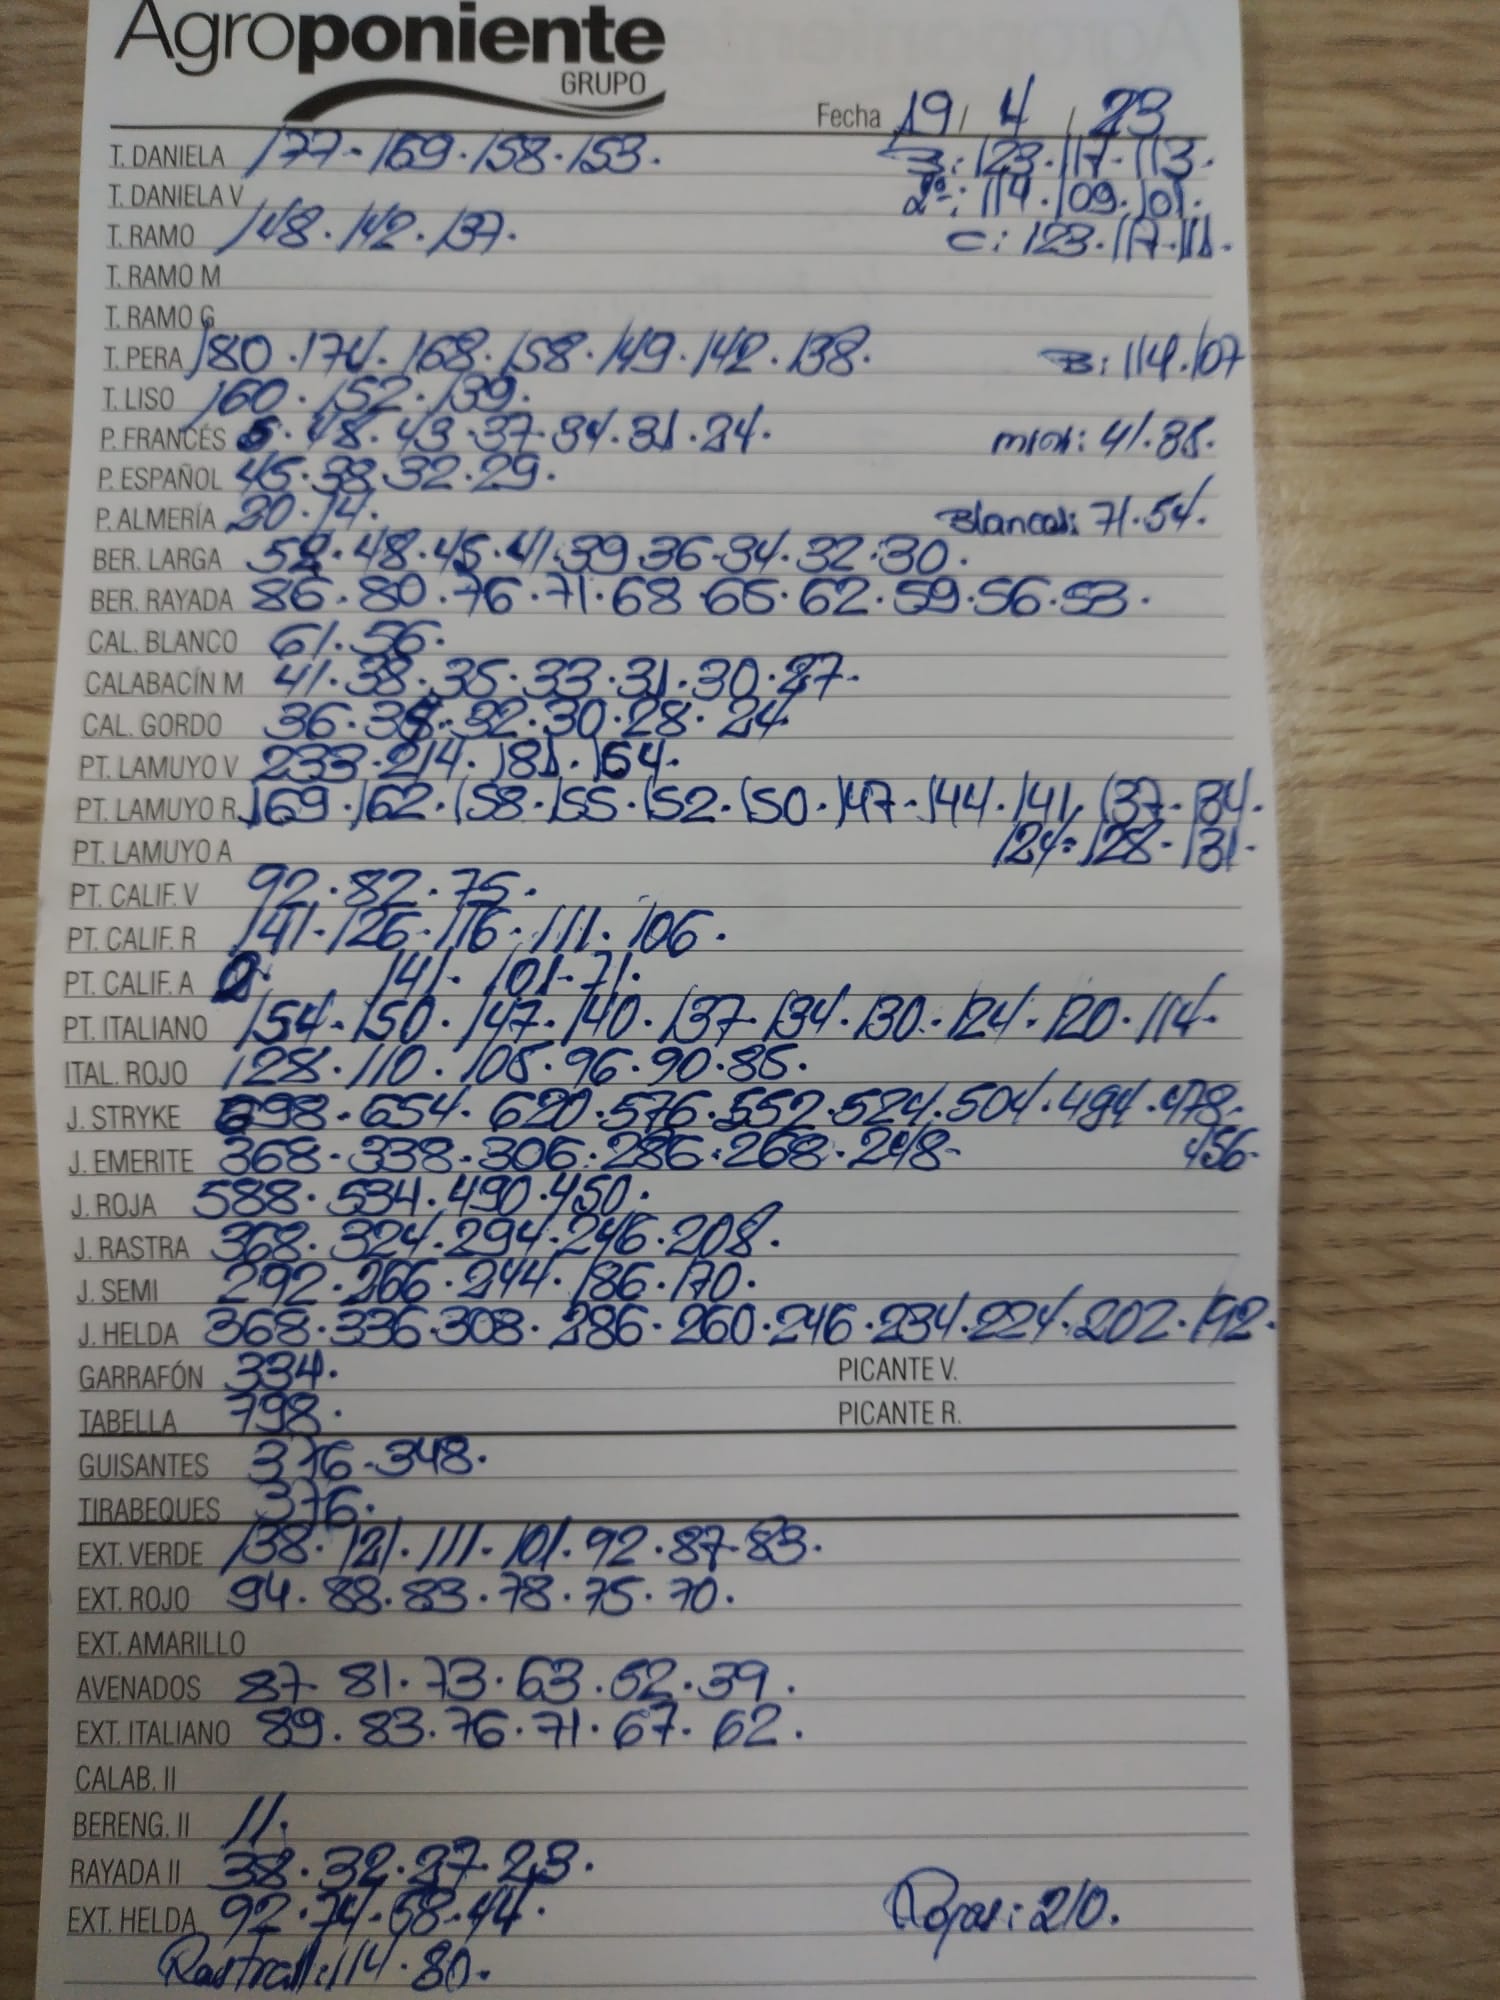 Agroponiente
GRUPO
Fecha 19 / 4 / 23
T. DANIELA 177 - 169 · 158 · 153 · B: 123 · 117 - 113 ·
T. DANIELA V 2ª: 114 · 109 · 101 ·
T. RAMO 148 · 142 · 137 · C: 123 · 117 · 111 ·
T. RAMO M
T. RAMO G
T. PERA 180 · 174 · 168 · 158 · 149 · 142 · 138 · B: 114 · 107
T. LISO 160 · 152 · 139 ·
P. FRANCÉS 48 · 43 · 37 - 34 · 31 · 24 · mini: 41 · 38 ·
P. ESPAÑOL 45 · 38 · 32 · 29 ·
P. ALMERÍA 20 · 14 · Blancas: 71 · 54 ·
BER. LARGA 52 · 48 · 45 · 41 · 39 · 36 - 34 · 32 · 30 ·
BER. RAYADA 86 · 80 · 76 · 71 · 68 · 65 · 62 · 59 · 56 · 53 ·
CAL. BLANCO 61 · 56 ·
CALABACÍN M 41 · 38 · 35 · 33 · 31 · 30 · 27 -
CAL. GORDO 36 · 34 · 32 · 30 · 28 · 24
PT. LAMUYO V 233 - 214 · 181 · 164 ·
PT. LAMUYO R 169 · 162 · 158 · 155 · 152 · 150 · 147 - 144 · 141 · 137 - 134 ·
PT. LAMUYO A 124 - 128 - 131 -
PT. CALIF. V 92 · 82 · 75 ·
PT. CALIF. R 141 - 126 - 116 - 111 · 106 ·
PT. CALIF. A 141 - 101 - 71 ·
PT. ITALIANO 154 - 150 · 147 - 140 · 137 - 134 · 130 · 124 · 120 · 114 -
ITAL. ROJO 128 · 110 · 105 · 96 · 90 · 85 ·
J. STRYKE 698 - 654 - 620 · 576 · 552 · 524 · 504 · 494 · 478 -
J. EMERITE 368 - 338 - 306 · 286 · 268 · 248 - 456 -
J. ROJA 588 · 534 · 490 · 450 ·
J. RASTRA 368 · 324 - 294 - 246 · 208 ·
J. SEMI 292 · 266 · 244 · 186 · 170 ·
J. HELDA 368 · 336 · 308 · 286 - 260 · 246 · 234 · 224 · 202 · 192 ·
GARRAFÓN 334 · PICANTE V.
TABELLA 798 · PICANTE R.
GUISANTES 376 - 348 ·
TIRABEQUES 376 ·
EXT. VERDE 138 · 121 · 111 - 101 · 92 · 87 - 83 ·
EXT. ROJO 94 · 88 · 83 · 78 · 75 · 70 ·
EXT. AMARILLO
AVENADOS 87 - 81 · 73 · 63 · 52 · 39 ·
EXT. ITALIANO 89 · 83 · 76 · 71 · 67 · 62 ·
CALAB. II
BERENG. II 11 ·
RAYADA II 38 · 32 · 27 · 23 ·
EXT. HELDA 92 · 74 - 58 - 44 · Rojas: 210 ·
Rastras: 114 · 80 ·